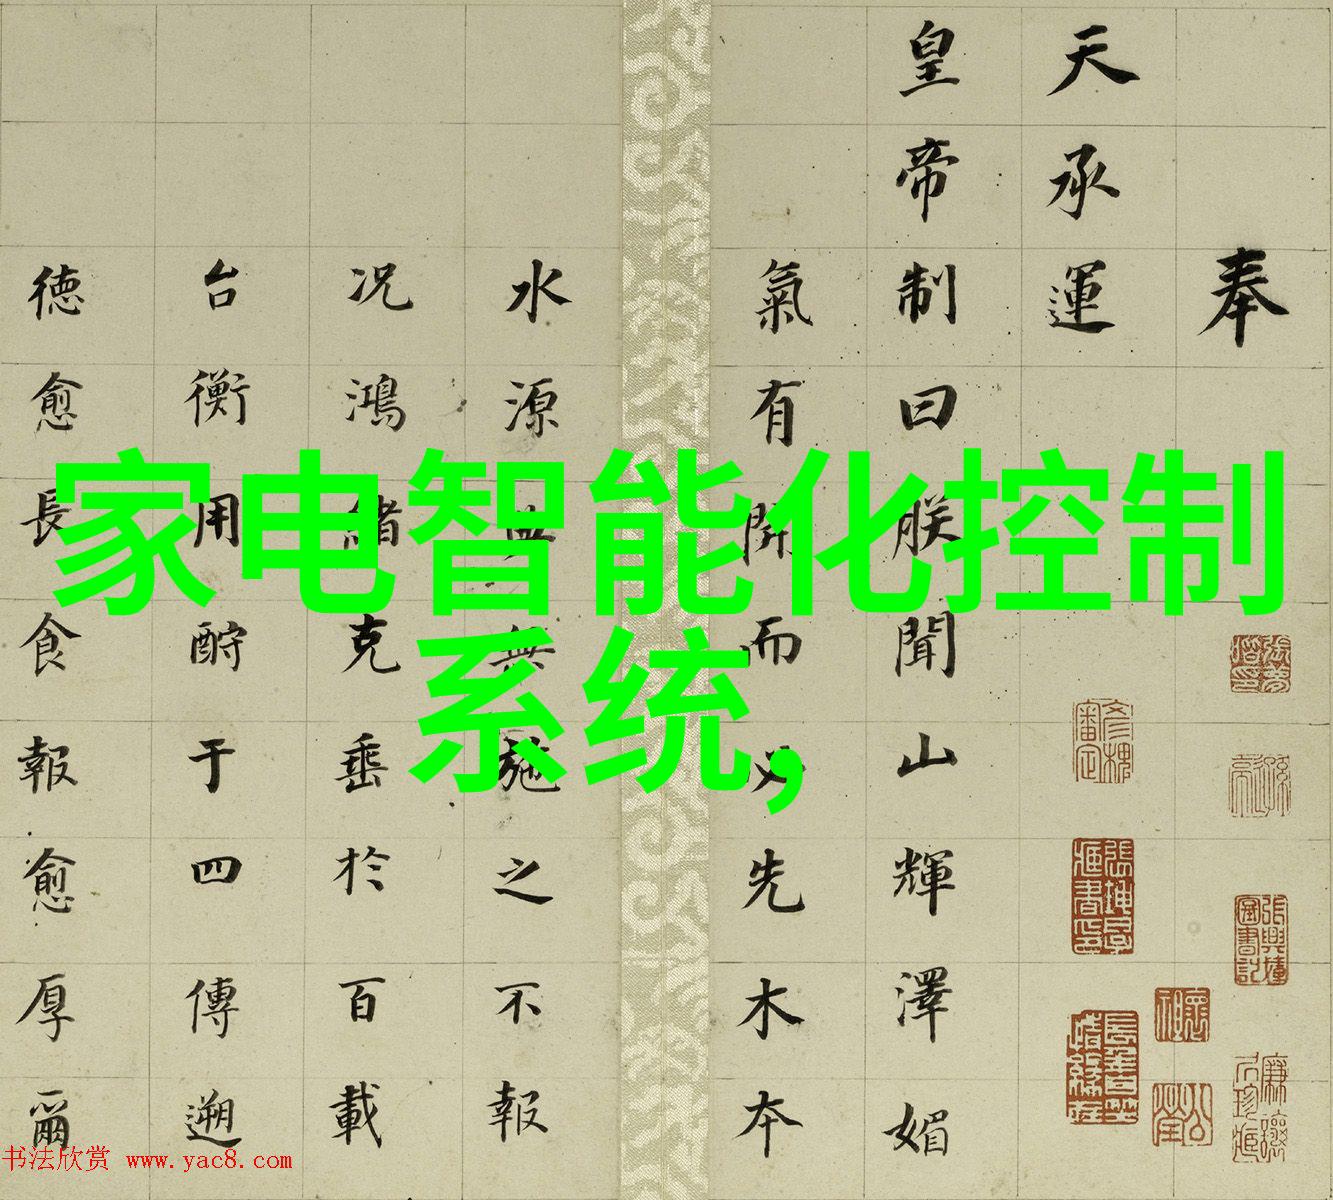 家电智能化控制
系统,
奉
天承運
皇帝制曰朕聞山輝澤媚
氣有開而必先木本
水源無施之不報
况鴻緒克垂於百載
台衡用酧于四傳遡
德愈長食報愈厚爾
书法欣赏 www.yac8.com